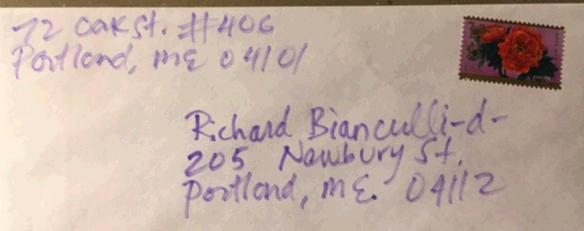 72 Oak St. #406
Portland, ME 04101
Richard Bianculli-d-
205 Newbury St.
Portland, ME. 04112